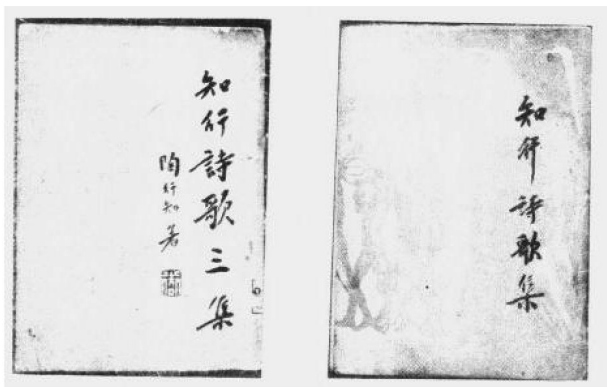 知行詩歌三集
陶行知著
知行詩歌集